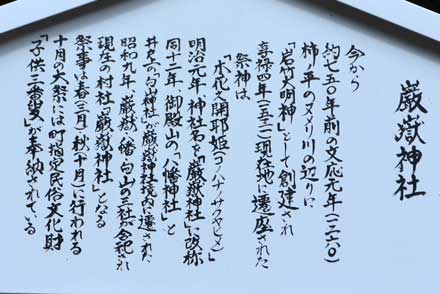 巌嶽神社
今から
約七五〇年前の文応元年(一二六〇)
柿平のヌメリ川の辺りに
「岩竹大明神」として創建され
享禄四年(一五三一)現在地に遷座された
祭神は
「木花之開耶姫(コノハナノサクヤヒメ)」
明治元年、神社名を「巌嶽神社」に改称
同十二年、御殿山の「八幡神社」と
井戸上の「白山神社」が巌嶽神社境内に遷された
昭和九年、巌嶽・八幡・白山の三社が合祀され
現在の村社「巌嶽神社」となる
祭事は春(三月)秋(十月)に行われる
十月の大祭には町指定民俗文化財
「子供三番叟」が奉納されている